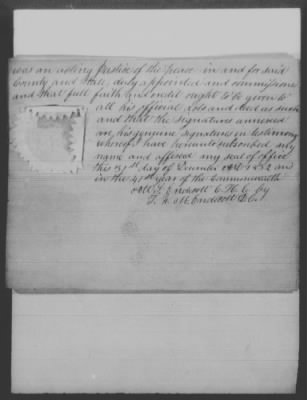 was an acting Justice of the Peace in and for said
County and State, duly appointed and commissioned
and that full faith and credit ought to be given to
all his official acts and deed as such
and that the signatures annexed
are his genuine signatures in testimony
whereof I have hereunto subscribed my
name and affixed my seal of office
this 31st day of December AD 1852 and
in the 61st year of the Commonwealth
Endicott C.H.C. by
Endicott D.C.